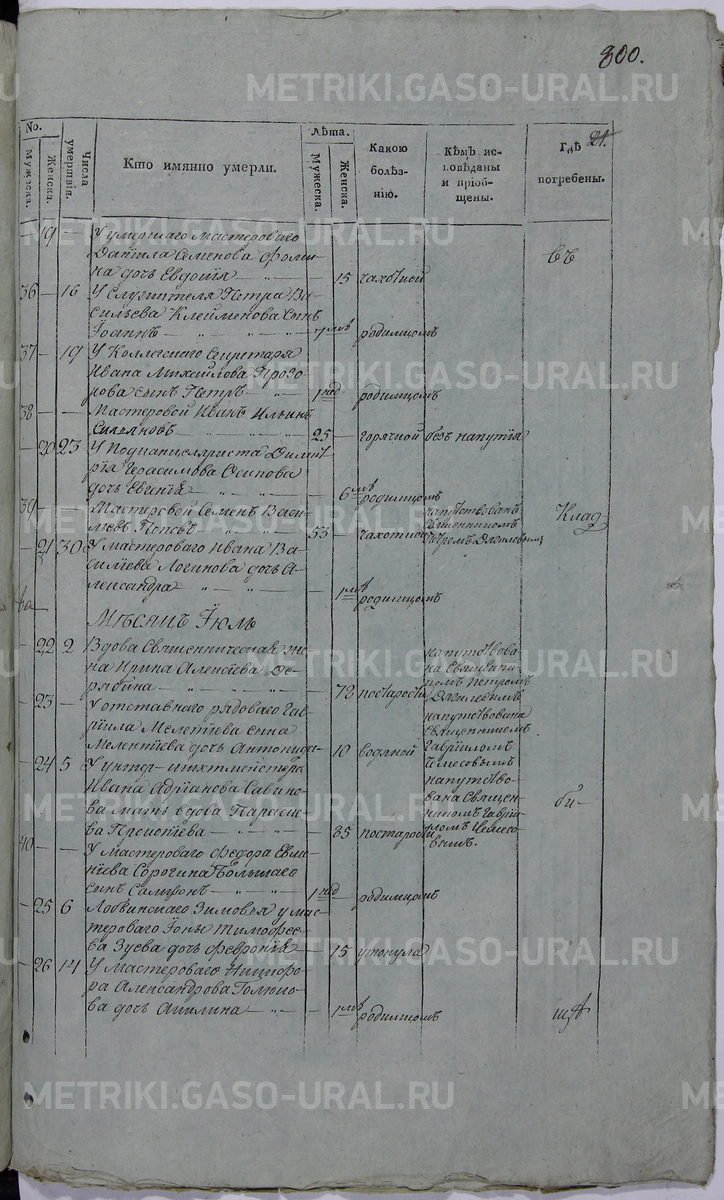 800.
21.
No.
Мужеска.
Женска.
Числа умертвія.
Кто имянно умерли.
Лѣта.
Мужеска.
Женска.
Какою болѣзнію.
Кѣмъ исповѣданы и пріобщены.
Гдѣ погребены.
— 19 — У умершаго мастероваго
Данiила Семенова Фоми-
на дочь Евдокiя — 15 чахотной
въ
36 — 16 У служителя Петра Ва-
сильева Клейменова сынъ
Iоаннъ — " — " — 7 мѣ — родимцомъ
37 — 19 У Коллежскаго Секретаря
Ивана Михайлова Прозо-
рова сынъ Петръ — 1 нед — родимцомъ
38 — — Мастеровой Иванъ Ильинъ
25 — горячкой безъ напутiя
— 20 23 У Подканцеляриста Дмит-
рiя Герасимова Осипова
дочь Евгенiя — " — " — 6 мѣ родимцомъ
39 — — Мастеровой Семенъ Васи-
льевъ Поповъ — " — " — 53 — чахоткой
напутствованъ
Священникомъ
Петромъ
Клад-
— 21 30 У мастероваго Ивана Ва-
силiева Логинова дочь А-
лександра — " — " — 1 мѣ родимцомъ
Мѣсяцъ Iюль
— 22 2 Вдова Священническая же-
на Ирина Алексiева Де-
рябина — " — " — 72 постарости
напутствова-
на Священни-
комъ Петромъ
— 23 — У отставнаго рядоваго Гав-
рiила Мелетiева сына
Мелентiева дочь Антонида — 10 водяной
напутствована
Священникомъ
Гаврiиломъ
— 24 5 У унтер-шихтмейстера
Ивана Адрiанова Савино-
ва мать вдова Параске-
ва Прокопiева — " — " — 85 постарости
напутство-
вана Священ-
никомъ Гаврiи-
ломъ
би-
40 — — У мастероваго Федора Евги-
нiева Сорогина Большаго
сынъ Сампсонъ — " — " — 1 нед — родимцомъ
— 25 6 Лобвинскаго Зимовья у мас-
тероваго Iоны Тимофее-
ва Зуева дочь Феврония — 15 утонула
— 26 14 У мастероваго Никифо-
ра Александрова
ва дочь Акилина — " — 1 мѣ родимцомъ
щѣ
METRIKI.GASO-URAL.RU